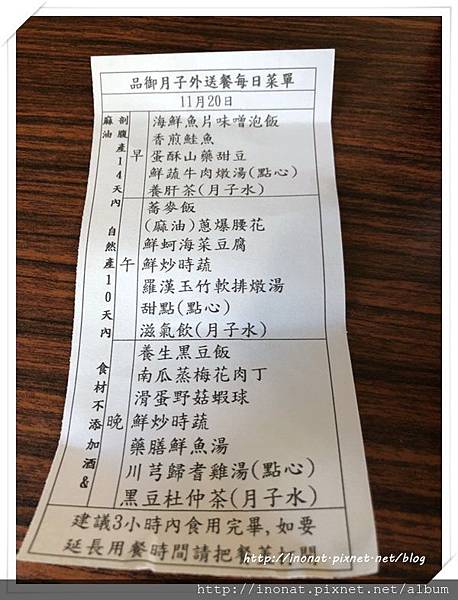 品御月子外送餐每日菜單
11月20日
剖腹產14天內 自然產10天內 食材不添加酒&
麻油
早
海鮮魚片味噌泡飯
香煎鮭魚
蛋酥山藥甜豆
鮮蔬牛肉燉湯(點心)
養肝茶(月子水)
午
蕎麥飯
(麻油)蔥爆腰花
鮮蚵海菜豆腐
鮮炒時蔬
羅漢玉竹軟排燉湯
甜點(點心)
滋氣飲(月子水)
晚
養生黑豆飯
南瓜蒸梅花肉丁
滑蛋野菇蝦球
鮮炒時蔬
藥膳鮮魚湯
川芎歸耆雞湯(點心)
黑豆杜仲茶(月子水)
建議3小時內食用完畢,如要
延長用餐時間請把餐蓋
http://inonat.pixnet.net/blog
http://inonat.pixnet.net/album